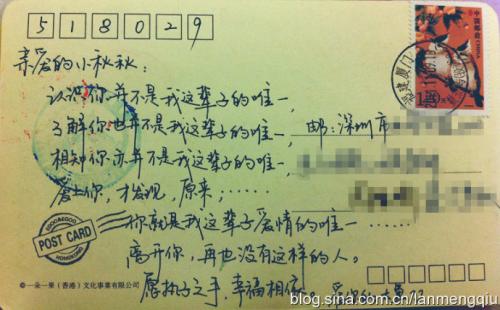 518029
亲爱的小秋秋：
认识你并不是我这辈子的唯一，
了解你也并不是我这辈子的唯一，
邮：深圳市
相知你亦并不是我这辈子的唯一，
爱上你，才发现，原来，……
你就是我这辈子爱情的唯一……
离开你，再也没有这样的人。
愿执子之手，幸福相依。
GOOD&GOOD
POST CARD
HONGKONG
©一朵一果（香港）文化事业有限公司
中国邮政
CHINA
福建厦门
blog.sina.com.cn/lanmengqiu